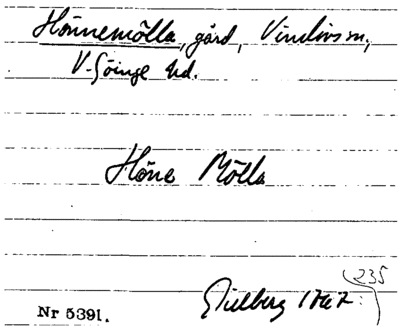 Hönnemölla, gård, Vinslövs sn,
V. Göinge hd.
Höne Mölla
235
Gillberg 1767.
Nr 5391.